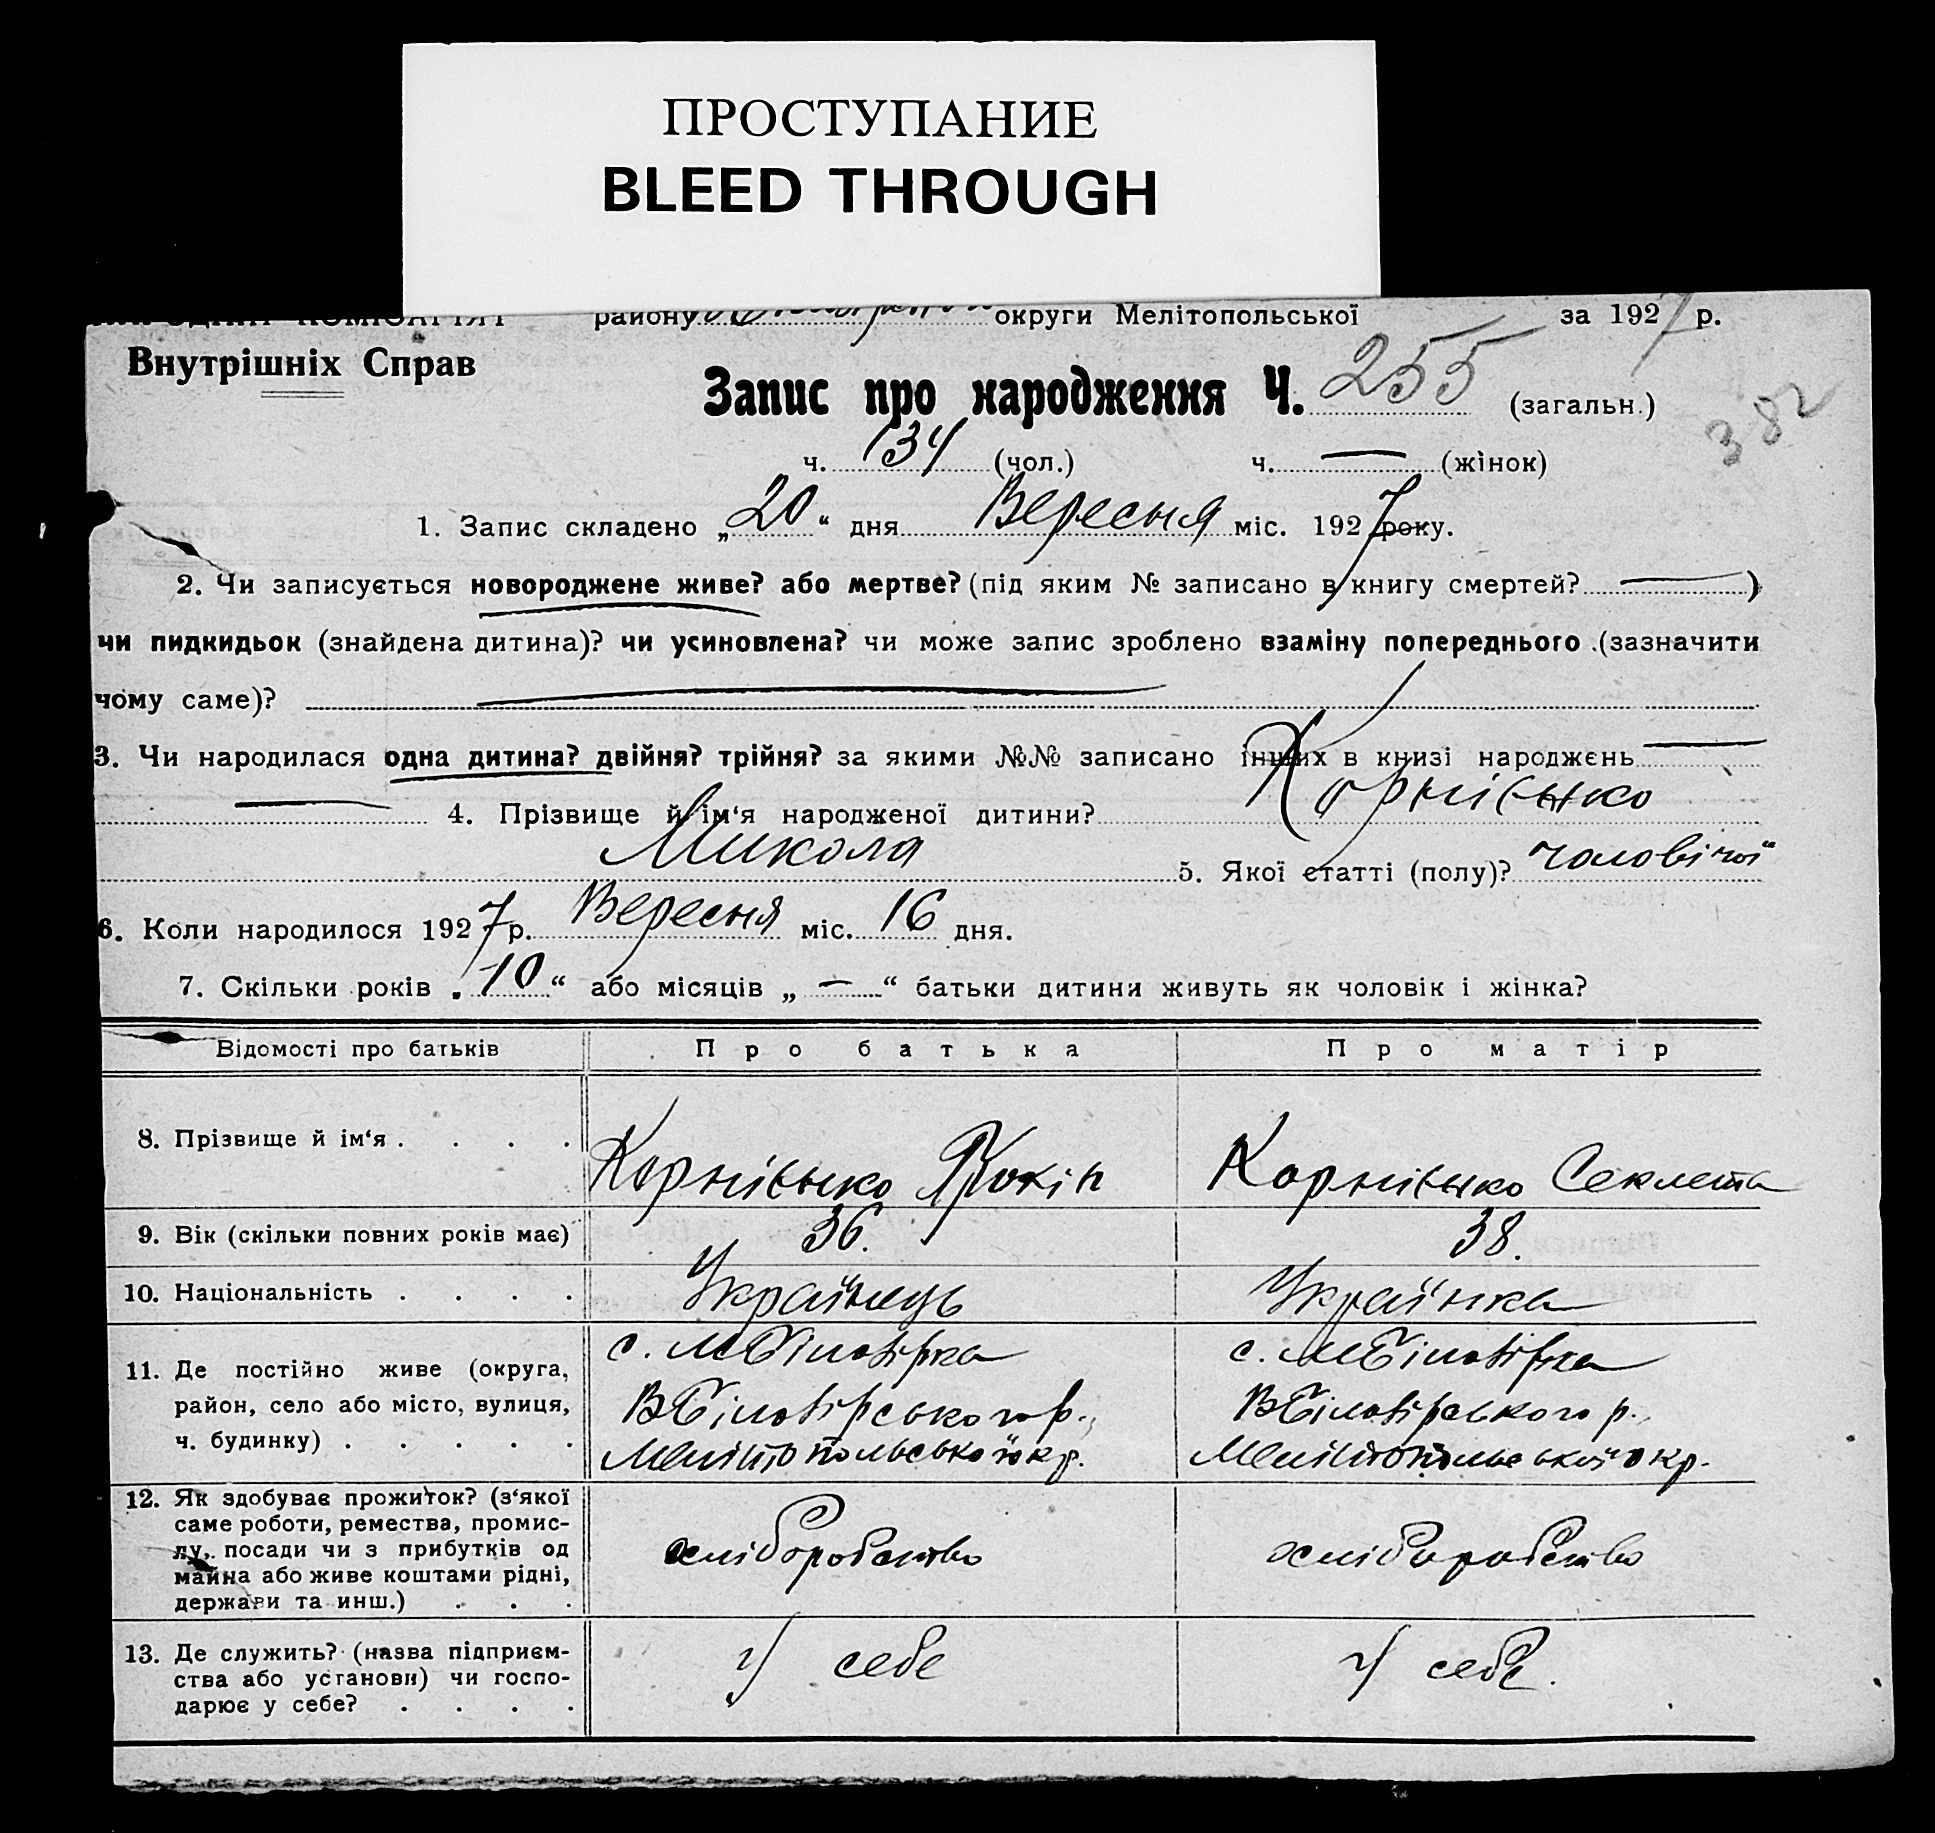 ПРОСТУПАНИЕ
BLEED THROUGH
району округи Мелітопольської за 1927 р.
Внутрішніх Справ
Запис про народження Ч. 255 (загальн.)
382
ч. 134 (чол.) ч. — (жінок)
1. Запис складено „20“ дня Вересня міс. 1927 року.
2. Чи записується новороджене живе? або мертве? (під яким № записано в книгу смертей? —)
чи пидкидьок (знайдена дитина)? чи усиновлена? чи може запис зроблено взаміну попереднього (зазначити
чому саме)? —
3. Чи народилася одна дитина? двійня? трійня? за якими №№ записано інших в книзі народжень —
— 4. Прізвище й ім‘я народженої дитини? Корнієнко
Микола 5. Якої статті (полу)? чоловічої
6. Коли народилося 1927 р. Вересня міс. 16 дня.
7. Скільки років „10“ або місяців „—“ батьки дитини живуть як чоловік і жінка?
Відомості про батьків Про батька Про матір
8. Прізвище й ім‘я . . . . Корнієнко Корнієнко Секлета
9. Вік (скільки повних років має) 36. 38.
10. Національність . . . . Українець Українка
11. Де постійно живе (округа, с. МБілозірка с. МБілозірка
район, село або місто, вулиця, ВБілозірського р., ВБілозірського р.,
ч. будинку) . . . . . Мелітопольської окр. Мелітопольської окр.
12. Як здобуває прожиток? (з‘якої
саме роботи, ремества, промис-
лу, посади чи з прибутків од хліборобство хліборобство
майна або живе коштами рідні,
держави та инш.) . . .
13. Де служить? (назва підприєм- у себе у себе.
ства або установи) чи госпо-
дарює у себе? . . . .